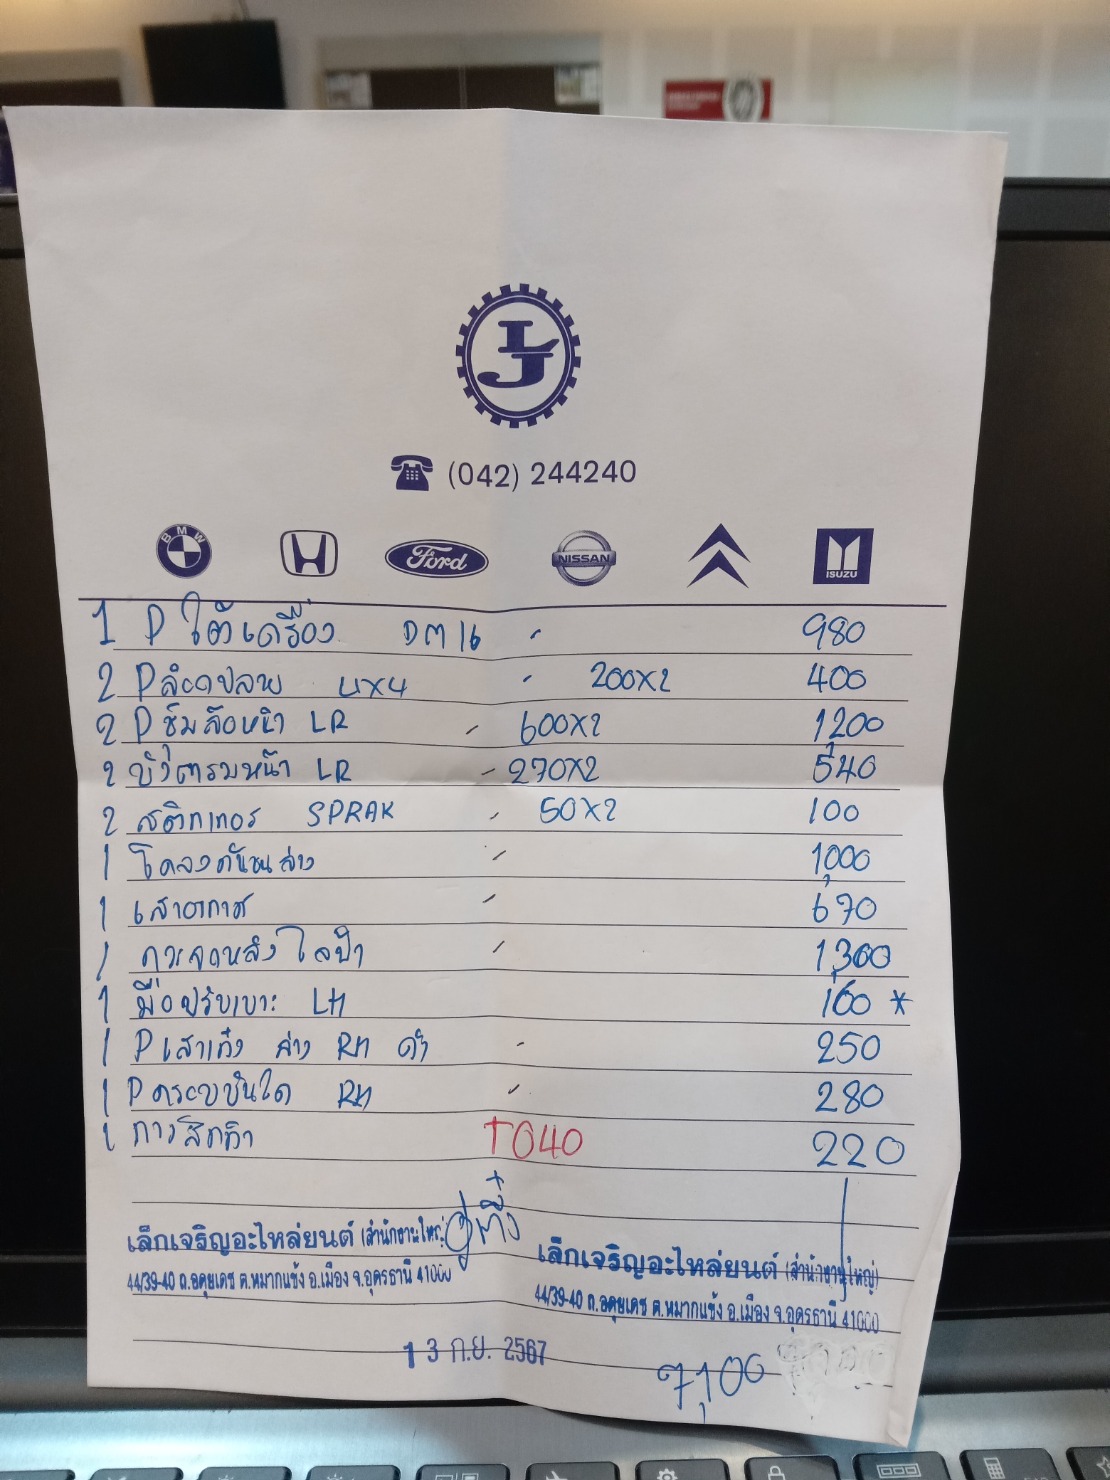 LJ
(042) 244240
BMW Ford NISSAN ISUZU
1 P ใต้เครื่อง DM16 - 980
2 P ล๊อดปลาย 4x4 - 200x2 400
2 P ซุ้มล้อหน้า LR - 600x2 1,200
2 บังโคลนหน้า LR - 270x2 540
2 สติกเกอร์ SPRAK - 50x2 100
1 - 1,000
1 เสาอากาศ - 670
1 กระจกหลัง ไฟฟ้า - 1,300
1 มือปรับเบาะ LH 160 *
1 P เสาเก๋ง ล่าง RH ดำ - 250
1 P ครอบบันได RH - 280
1 TO40 220
เล็กเจริญอะไหล่ยนต์ (สำนักงานใหญ่)
44/39-40 ถ.อดุยเดช ต.หมากแข้ง อ.เมือง จ.อุดรธานี 41000
เล็กเจริญอะไหล่ยนต์ (สำนักงานใหญ่)
44/39-40 ถ.อดุยเดช ต.หมากแข้ง อ.เมือง จ.อุดรธานี 41000
13 ก.ย. 2567
7,100